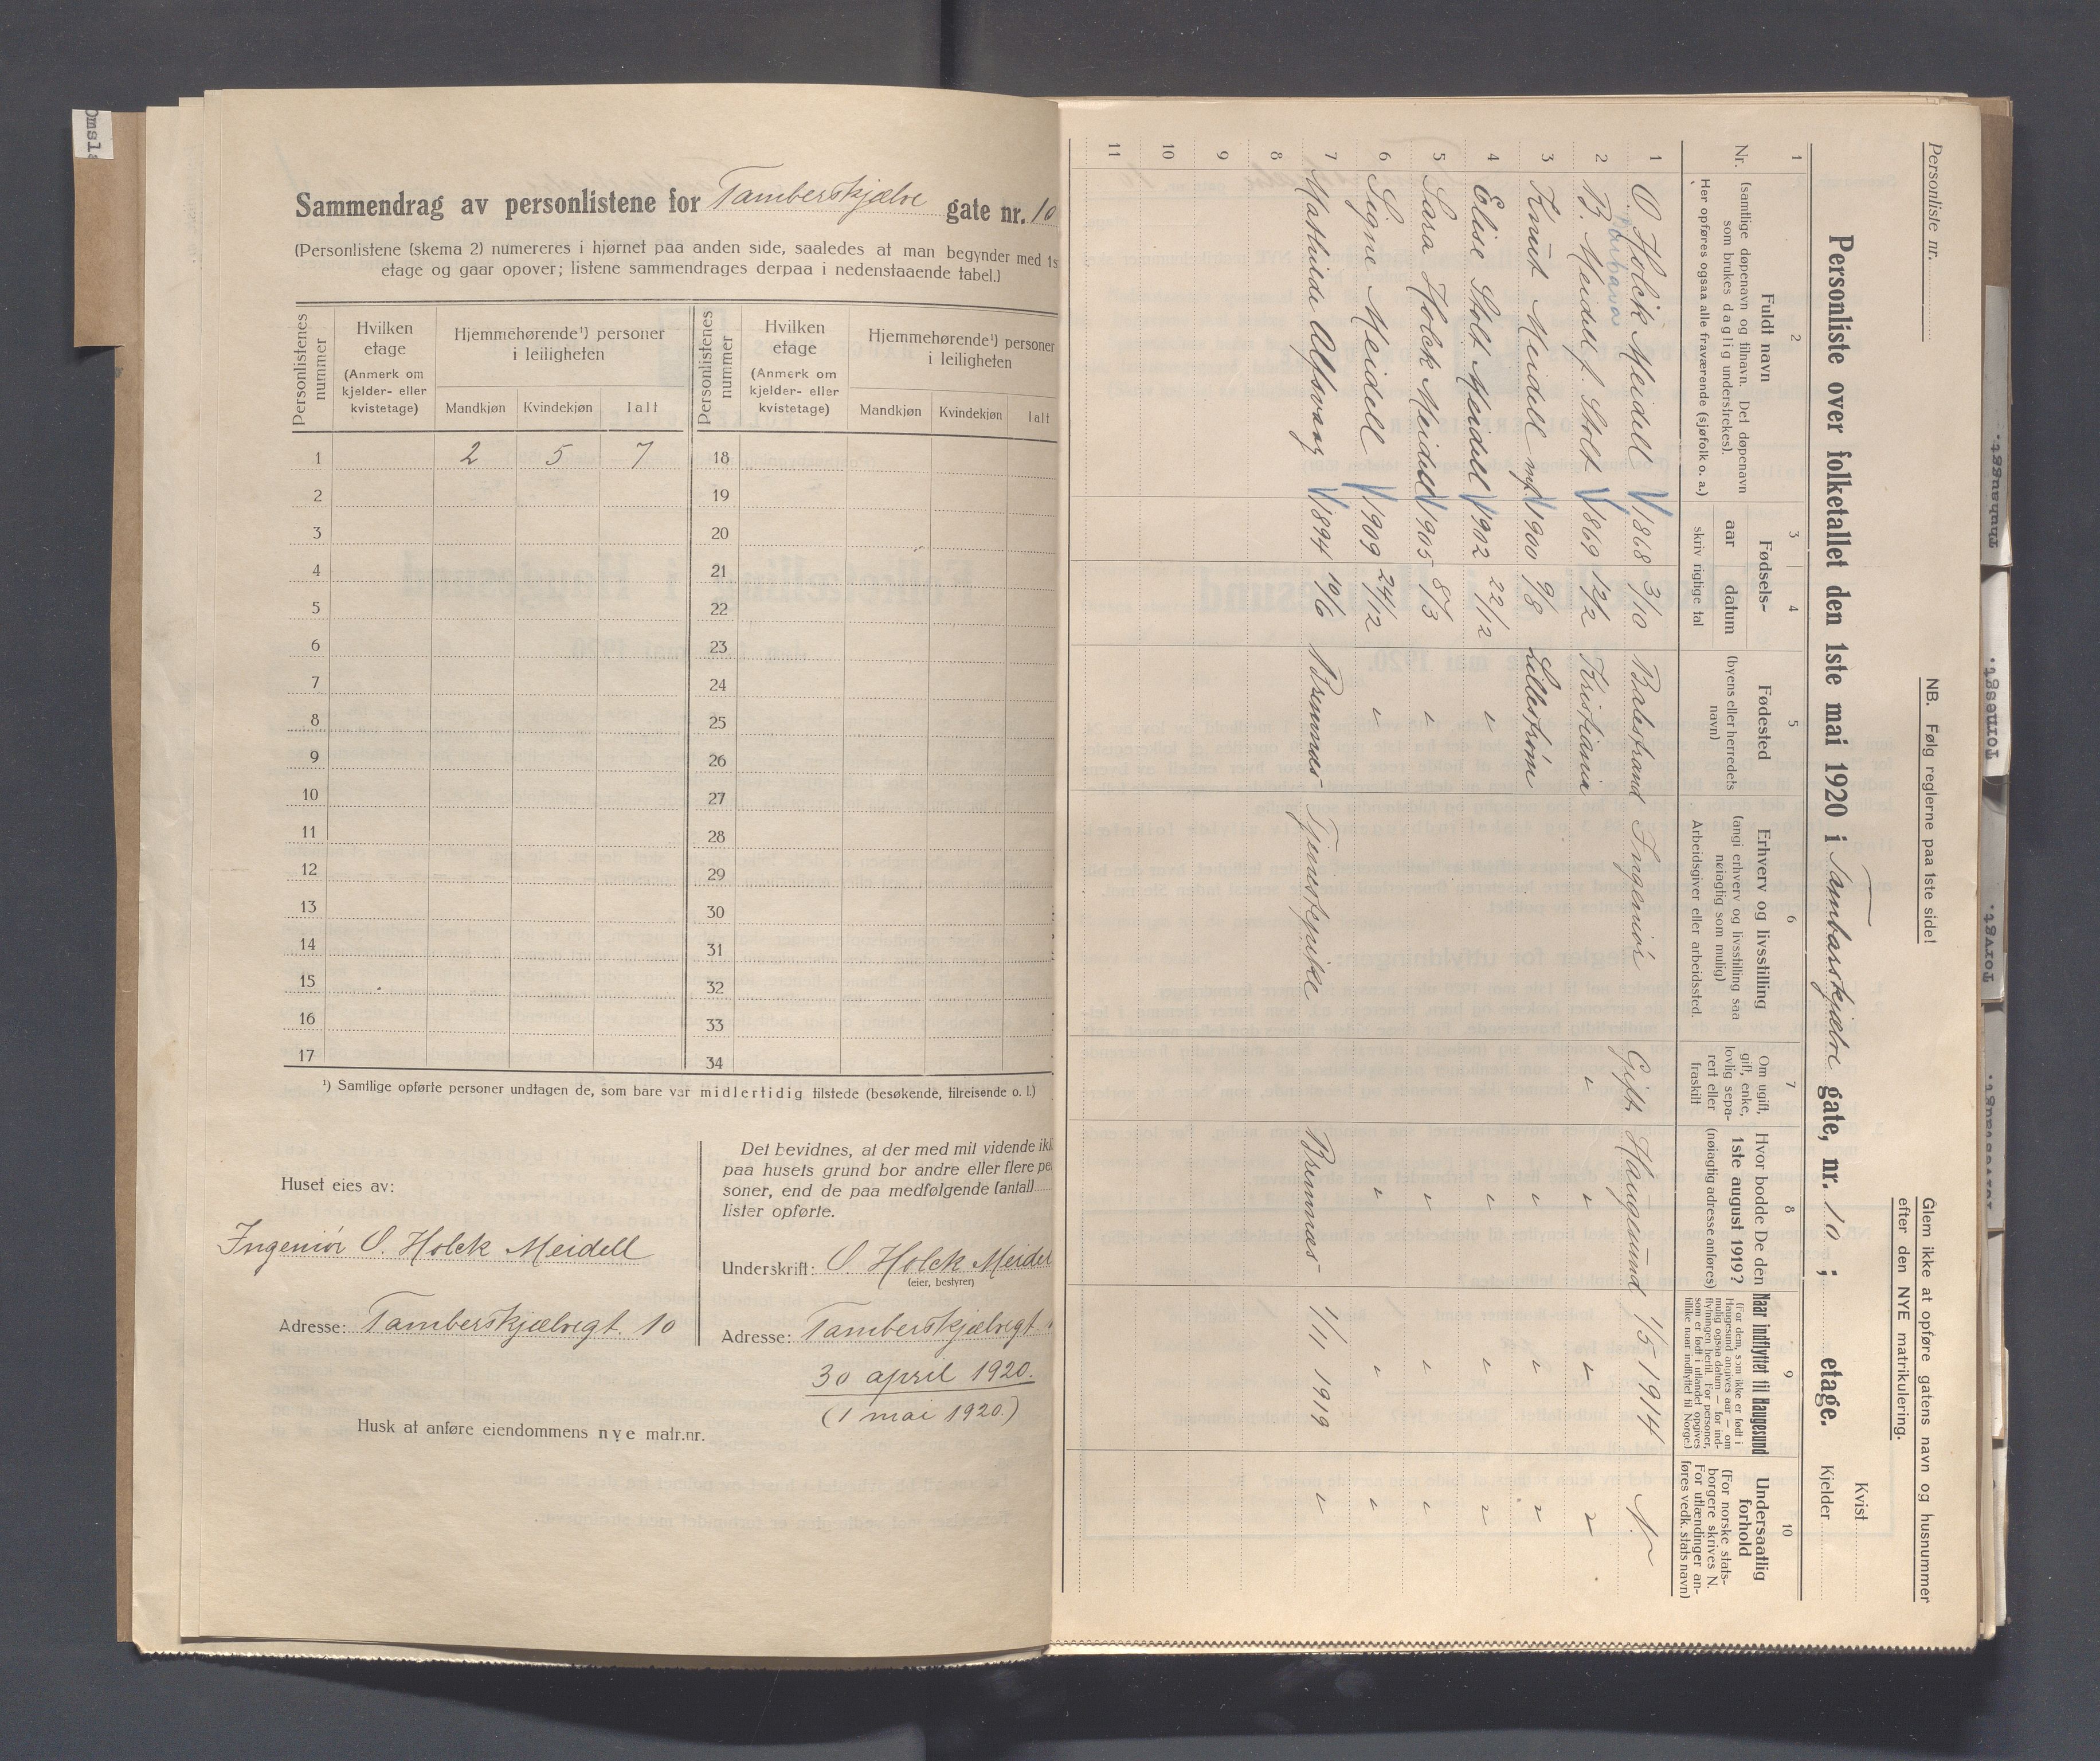 Omsl
Sammendrag av personlistene for Tamberskjælve gate nr. 10
(Personlistene (skema 2) numereres i hjørnet paa anden side, saaledes at man begynder med 1s
etage og gaar opover; listene sammendrages derpaa i nedenstaaende tabel.)
Personlistenes nummer
Hvilken etage (Anmerk om kjelder- eller kvistetage)
Hjemmehørende¹) personer i leiligheten
Mandkjøn Kvindekjøn Ialt
Personlistenes nummer
Hvilken etage (Anmerk om kjelder- eller kvistetage)
Hjemmehørende¹) personer i leiligheten
Mandkjøn Kvindekjøn Ialt
1 2 5 7 18
2 19
3 20
4 21
5 22
6 23
7 24
8 25
9 26
10 27
11 28
12 29
13 30
14 31
15 32
16 33
17 34
¹) Samtlige opførte personer undtagen de, som bare var midlertidig tilstede (besøkende, tilreisende o. l.)
Huset eies av:
Ingeniør O. Holck Meidell
Adresse: Tamberskjælvegt. 10
Det bevidnes, at der med mit vidende ik
paa husets grund bor andre eller flere pe
soner, end de paa medfølgende (antal)
lister opførte.
Underskrift: O. Holck Meidel
(eier, bestyrer)
Adresse: Tamberskjælvegt
30 april 1920.
(1 mai 1920.)
Husk at anføre eiendommens nye matr.nr.
Personliste nr.
NB. Følg reglerne paa 1ste side!
Glem ikke at opføre gatens navn og husnummer
efter den NYE matrikulering.
Personliste over folketallet den 1ste mai 1920 i Tambarskjælve gate, nr. 10; etage.
Kvist
Kjelder
1 2 3 4 5 6 7 8 9 10
Nr.
Fuldt navn
(samtlige døpenavn og tilnavn. Det døpenavn
som brukes daglig understrekes).
Her opføres ogsaa alle fraværende (sjøfolk o. a.)
Fødsels-
aar datum
skriv rigtige tal
Fødested
(byens eller herredets
navn)
Erhverv og livsstilling
(angi erhverv og livsstilling saa
nøiagtig som mulig)
Arbeidsgiver eller arbeidssted.
Om ugift,
gift, enke,
lovlig sepa-
rert eller
fraskilt
Hvor bodde De den
1ste august 1919?
(nøiagtig adresse anføres)
Naar indflyttet til Haugesund
(For dem, som ikke er født i
Haugesund angives aar — om
mulig ogsaa datum — for ind-
flytningen hertil. For personer,
som er født i utlandet opgives
tillike naar indflyttet til Norge.)
Undersaatlig
forhold
(For norske stats-
borgere skrives N.
For utlændinger an-
føres vedk. stats navn)
1 O Holck Meidell 1868 3/10 Balestrand Ingeniør Gift. Haugesund 1/5 1914 N.
Barbara
2 B. Meidell f. Stolt 1869 12/2 Kristiania " " " "
3 Knut Meidell 1900 9/8 Lillestrøm " " "
4 Elise Stolt Meidell 1902 22/12 " " " "
5 Sara Holck Meidell 1905 8/3 " " " "
6 Signe Meidell 1909 24/12 " " " "
7 Mathilde Alfsvaag 1894 19/6 Bremnes Tjenstepike Bremnes 1/11 1919 "
8
9
10
11
Thuhauggt.
Tornesgt.
Torvgt.